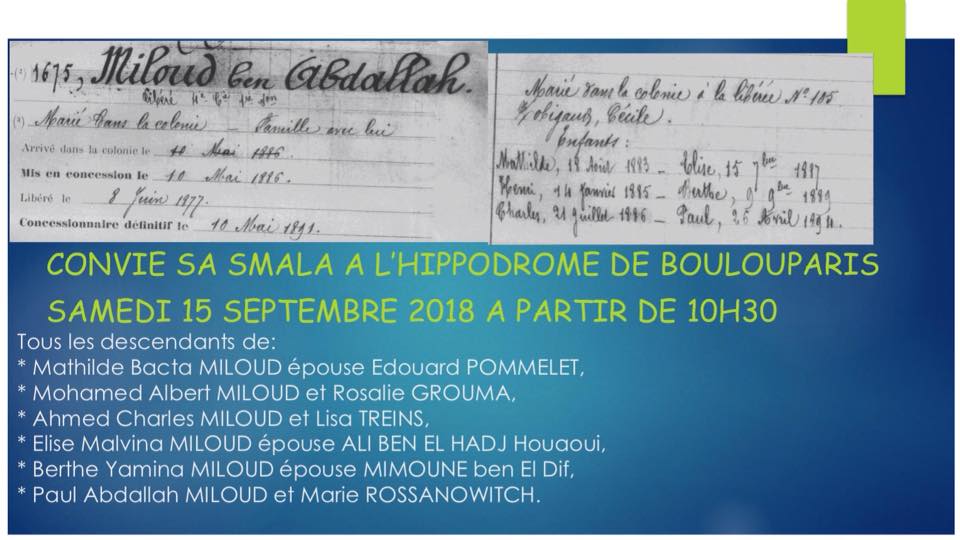 1675, Miloud ben Abdallah.
Libéré
Marié dans la colonie — Famille avec lui
Arrivé dans la colonie le 10 Mai 1886.
Mis en concession le 10 Mai 1886.
Libéré le 8 Juin 1877.
Concessionnaire définitif le 10 Mai 1891.
Marié dans la colonie à la libérée N° 105
Cécile.
Enfants :
Mathilde, 18 Août 1883 — Elise, 15 7bre 1887
Henri, 14 Janvier 1885 — Berthe, 9 9bre 1889
Charles, 21 Juillet 1886 — Paul, 25 Avril 1894.
CONVIE SA SMALA A L'HIPPODROME DE BOULOUPARIS
SAMEDI 15 SEPTEMBRE 2018 A PARTIR DE 10H30
Tous les descendants de:
* Mathilde Bacta MILOUD épouse Edouard POMMELET,
* Mohamed Albert MILOUD et Rosalie GROUMA,
* Ahmed Charles MILOUD et Lisa TREINS,
* Elise Malvina MILOUD épouse ALI BEN EL HADJ Houaoui,
* Berthe Yamina MILOUD épouse MIMOUNE ben El Dif,
* Paul Abdallah MILOUD et Marie ROSSANOWITCH.